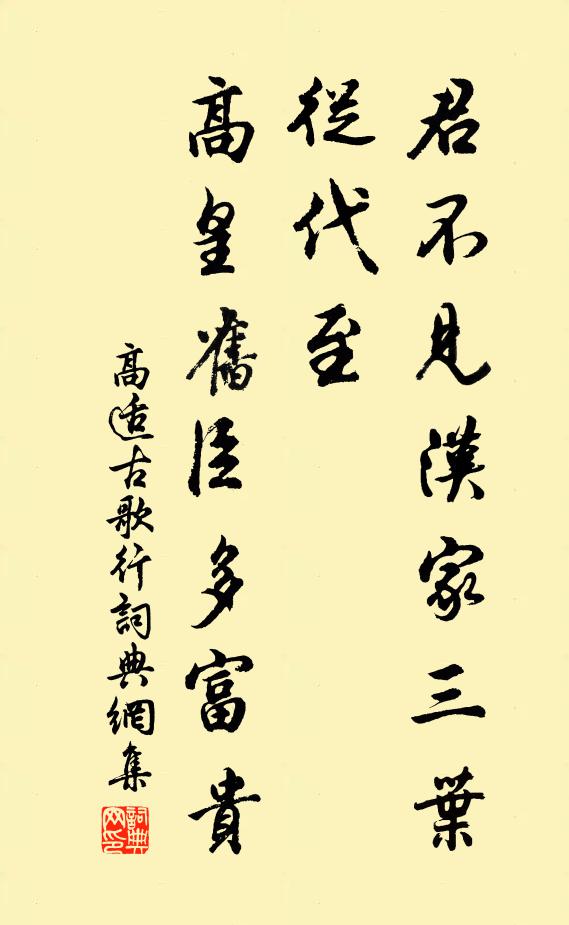 君不見漢家三葉
從代至
高皇舊臣多富貴
高適古歌行詞典網集
詞典網印